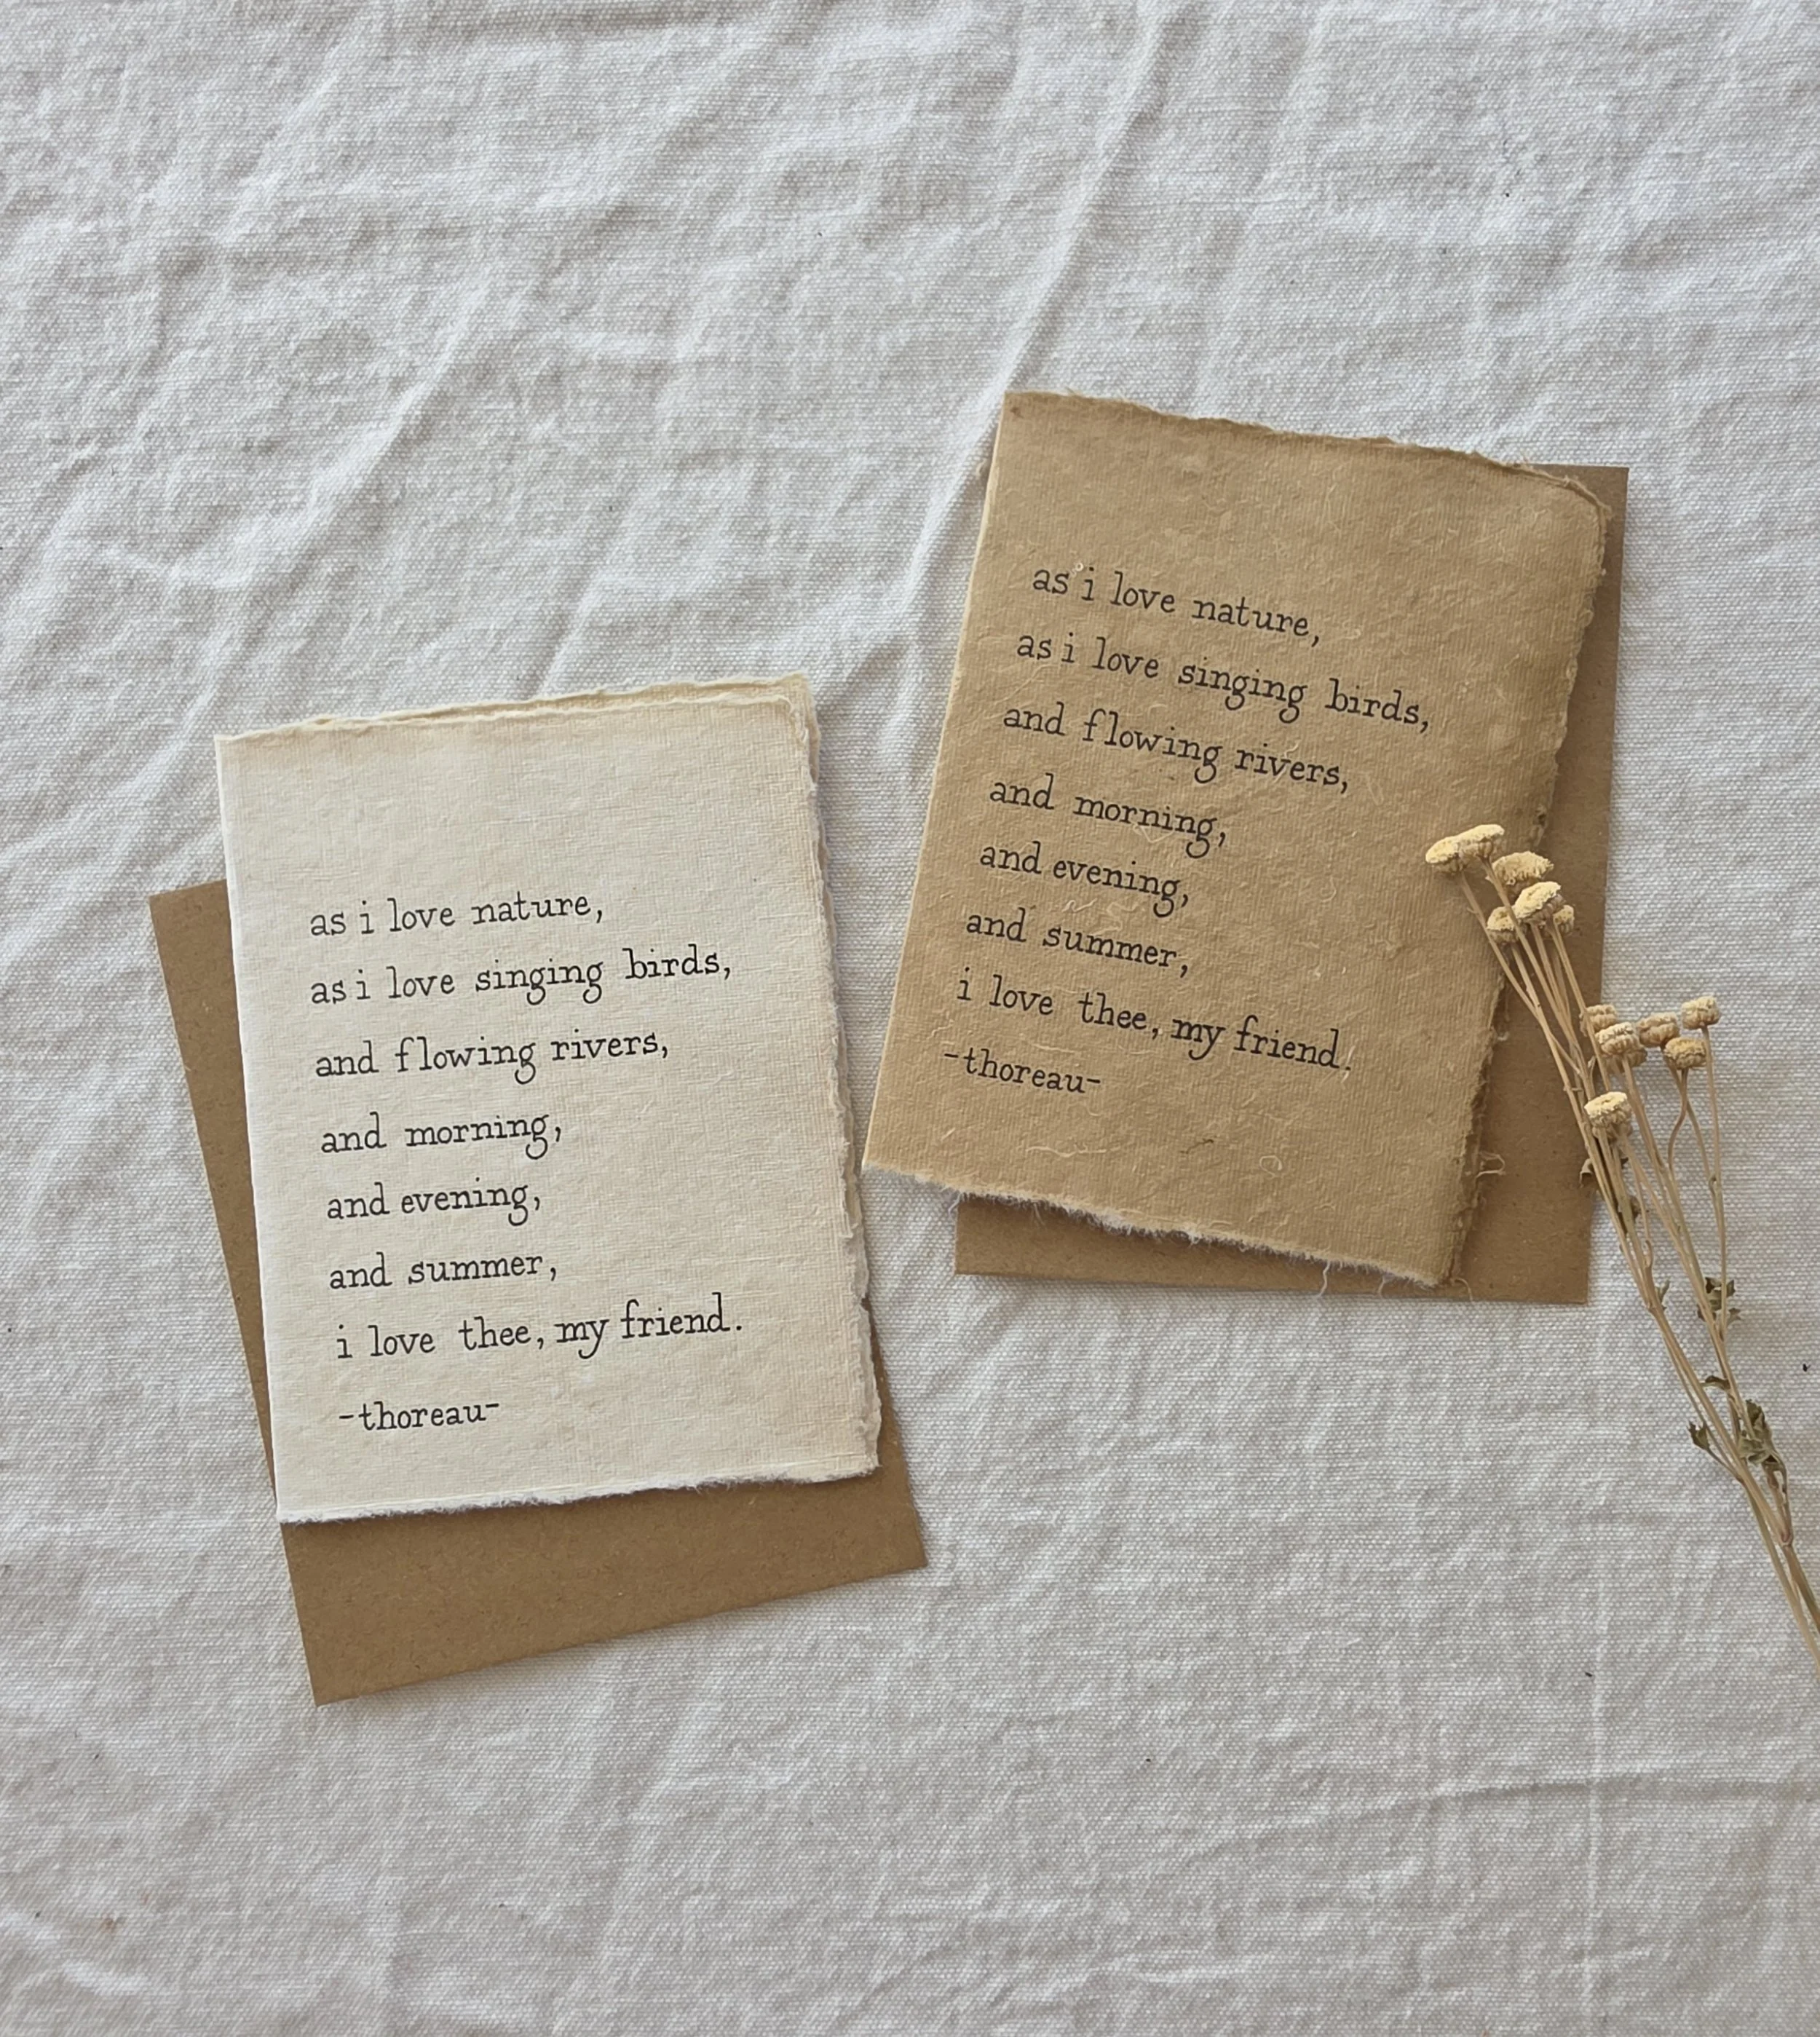 as i love nature,
as i love singing birds,
and flowing rivers,
and morning,
and evening,
and summer,
i love thee, my friend.
-thoreau-
as i love nature,
as i love singing birds,
and flowing rivers,
and morning,
and evening,
and summer,
i love thee, my friend.
-thoreau-